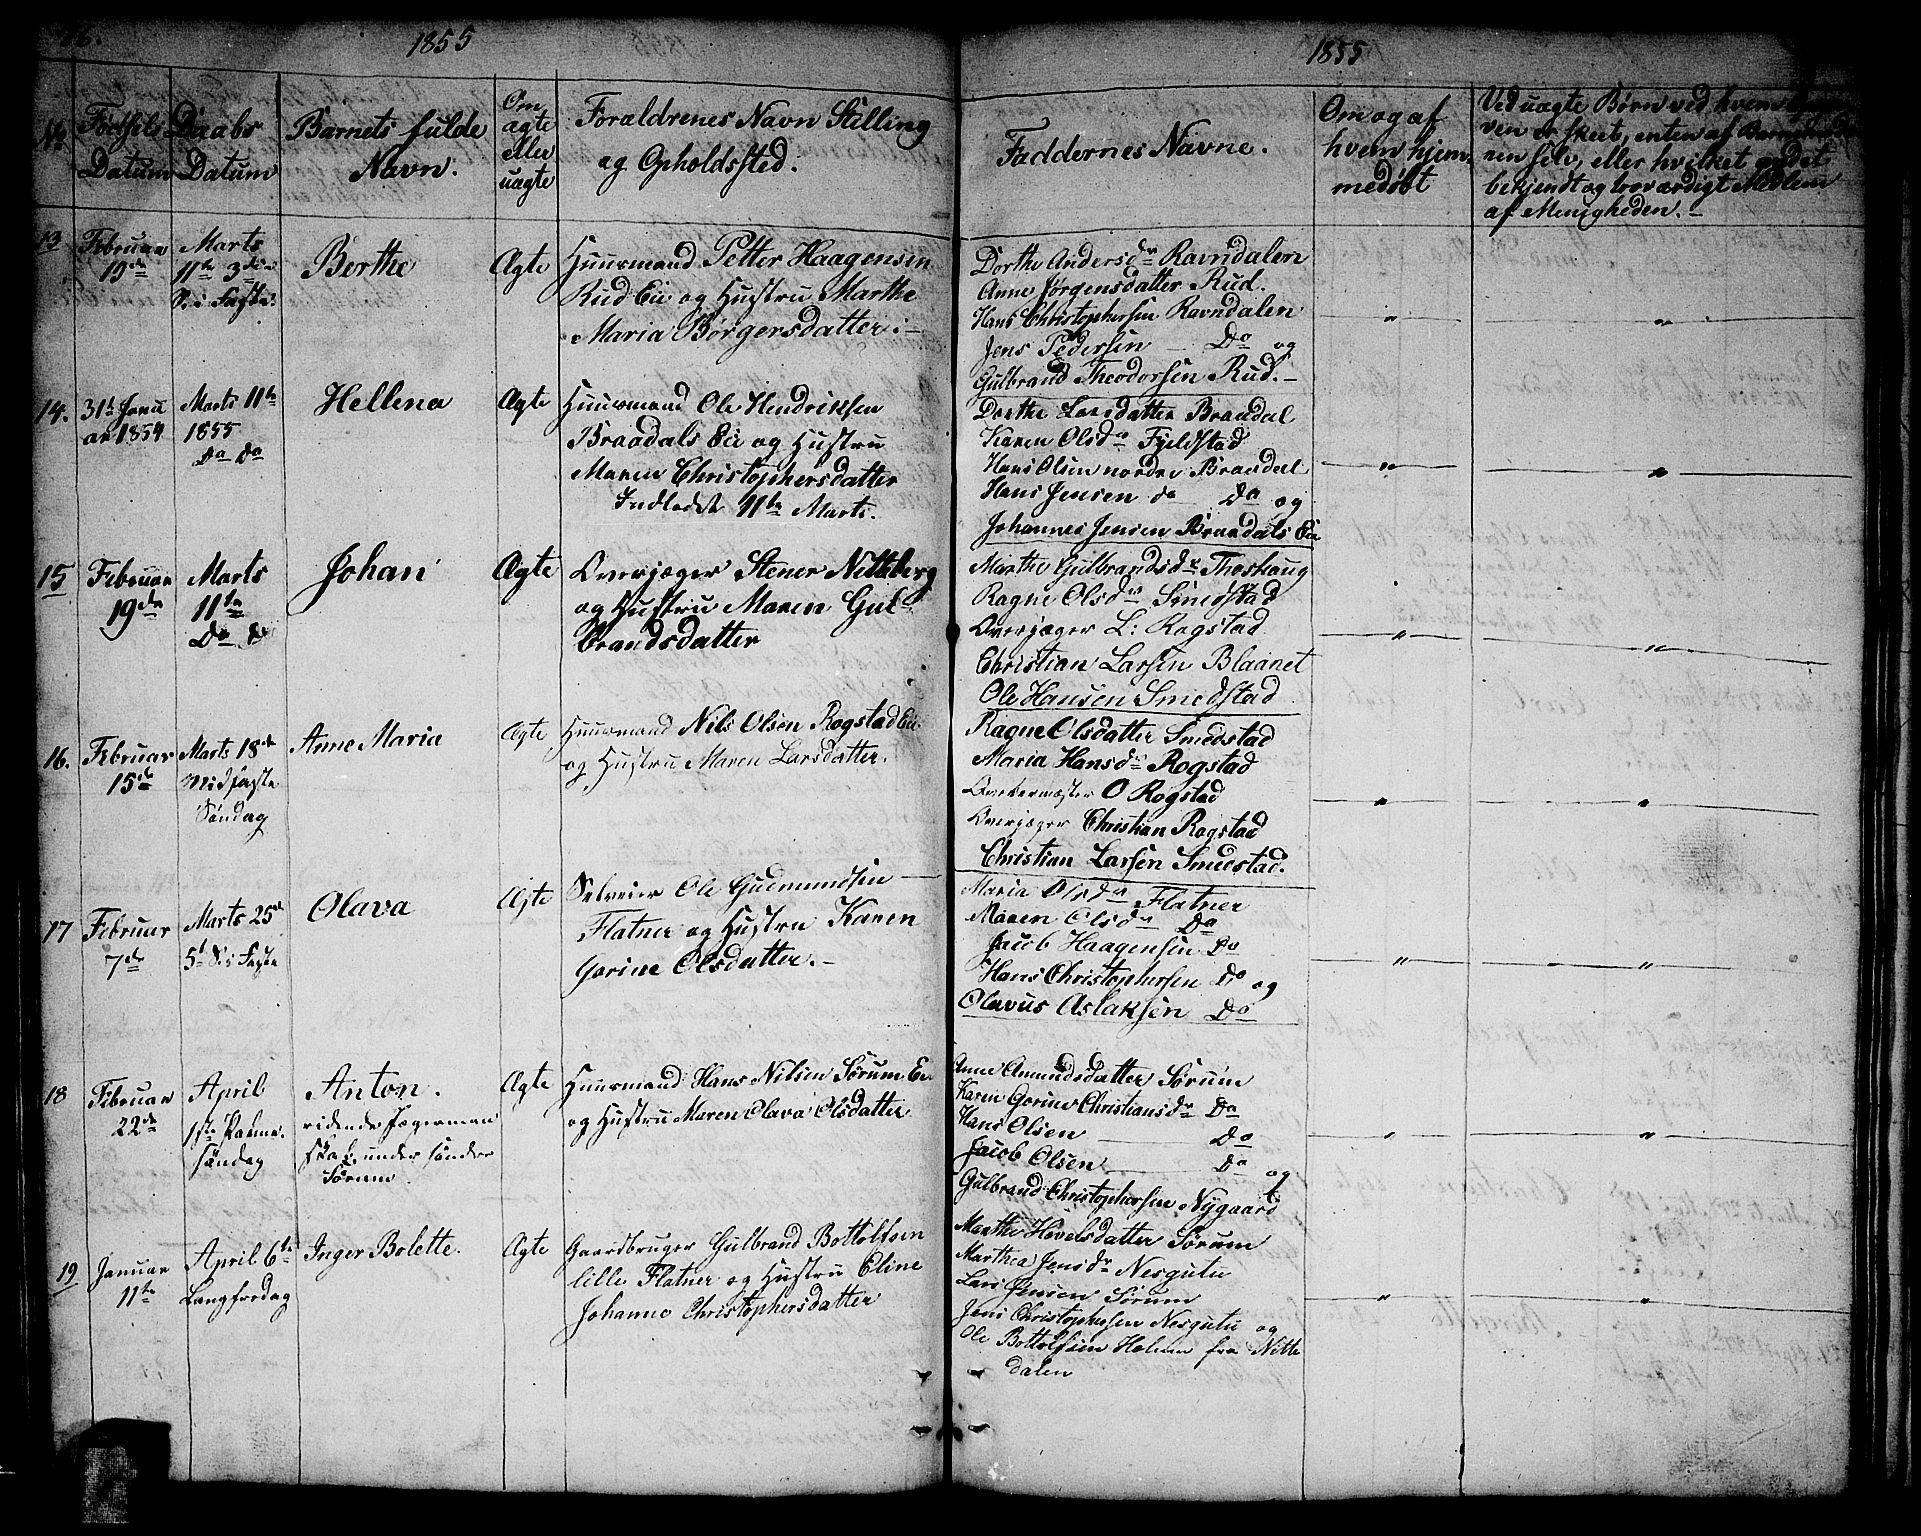 1855
No
Fødsels
Datum
Daabs
Datum
Barnets fulde
Navn.
Om
ægte
eller
uægte
Forældrenes Navn Stilling
og Opholdssted.
13
Februar
19de
Marts
11te 3die
S. i Faste.
Berthe
Ægte
Huusmand Petter Haagensen
Rud Eie og Hustru Marthe
Maria Børgersdatter.
14.
31te Janu
ar 1854
Marts 11te
1855
Do Do
Hellena
Ægte
Huusmand Ole Hendriksen
Braadals Eie og Hustru
Maren Christophersdatter
Indledet 11te Marts.
15
Februar
19de
Marts
11te
Do Do
Johan
Ægte
Overjæger Stener Nittberg
og Hustru Maren Gul
brandsdatter
16.
Februar
15de
Marts 18de
Midfaste
Søndag
Anne Maria
Ægte
Huusmand Nils Olsen Rogstad Eie
og Hustru Maren Larsdatter.
17
Februar
7de
Marts 25de
5te S. i Faste
Olava
Ægte
Selveier Ole Gudmundsen
Flatner og Hustru Karen
Gorine Olsdatter.
18
Februar
22de
April
1ste Palme
søndag
Anton.
ridende Jægerman
skab under søndre
Sørum
Ægte
Huusmand Hans Nilsen Sørum Eie
og Hustru Maren Olava Olsdatter
19
Januar
11te
April 6te
Langfredag
Inger Bolette.
Ægte
Gaardbruger Gulbrand Bottolfsen
lille Flatner og Hustru Eline
Johanne Christophersdatter
1855
Faddernes Navne.
Om og af
hvem hjem
medøbt
Ved uægte Børn ved hvem
ven er skeet, enten af
nen selv, eller hvilket andet
bekjendt og troværdigt Medlem
af Menigheden.
Dorthe Andersdr Ravndalen
Anne Jørgensdatter Rud.
Hans Christophersen Ravndalen
Jens Pedersen Do og
Gulbrand Theodorsen Rud.
" "
Dorthe Larsdatter Braadal
Karen Olsdr Fjeldstad
Hans Olsen nordre Braadal
Hans Jensen do Do og
Johannes Jensen Braadals Eie
" "
Marthe Gulbrandsdr Thoshaug
Ragne Olsdr Smedstad
Overjæger L: Rogstad
Christian Larsen Blaanet
Ole Hansen Smedstad
" "
Ragne Olsdatter Smedstad
Maria Hansdr Rogstad
O Rogstad
Overjæger Christian Rogstad
Christian Larsen Smedstad.
" "
Maria Olsdr Flatner
Maren Olsdr Do
Jacob Haagensen Do
Hans Christophersen Do og
Olavus Aslaksen Do
" "
Anne Amundsdatter Sørum
Karen Gorine Christiansdr Do
Hans Olsen Do
Jacob Olsen Do og
Gulbrand Christophersen Nygaard
" "
Marthe Hovelsdatter Sørum
Marthea Jensdr Nesgutu
Lars Jensen Sørum
Jens Christophersen Nesgutu og
Ole Bottolfsen Holmen fra Nitte
dalen
" "